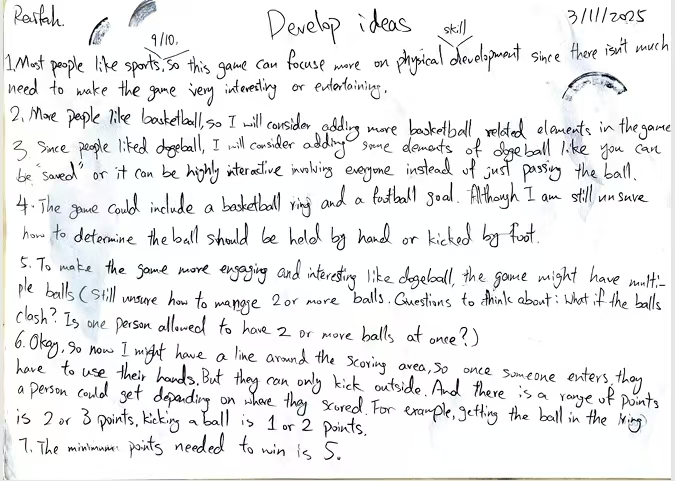 Rearfah.
Develop ideas
3/11/2025
9/10.
skill
1. Most people like sports, so this game can focuse more on physical development since there isn't much
need to make the game very interesting or entertaining.
2. More people like basketball, so I will consider adding more basketball related elements in the game
3. Since people liked dogeball, I will consider adding some elements of dogeball like you can
be "saved" or it can be highly interactive involving everyone instead of just passing the ball.
4. The game could include a basketball ring and a football goal. Although I am still unsure
how to determine the ball should be held by hand or kicked by foot.
5. To make the game more engaging and interesting like dogeball, the game might have multi-
ple balls (Still unsure how to mange 2 or more balls. Questions to think about: What if the balls
clash? Is one person allowed to have 2 or more balls at once?)
6. Okay, so now I might have a line around the scoring area, so once someone enters, they
have to use their hands. But they can only kick outside. And there is a range of points
a person could get depending on where they scored. For example, getting the ball in the ring
is 2 or 3 points, kicking a ball is 1 or 2 points.
7. The minimum points needed to win is 5.